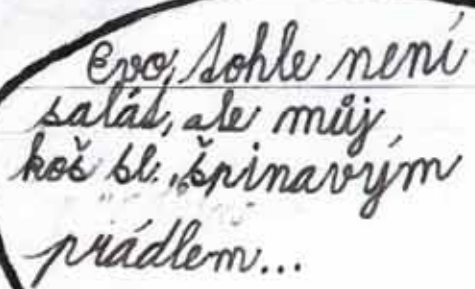 Evo, tohle není
salát, ale můj
koš se špinavým
prádlem...